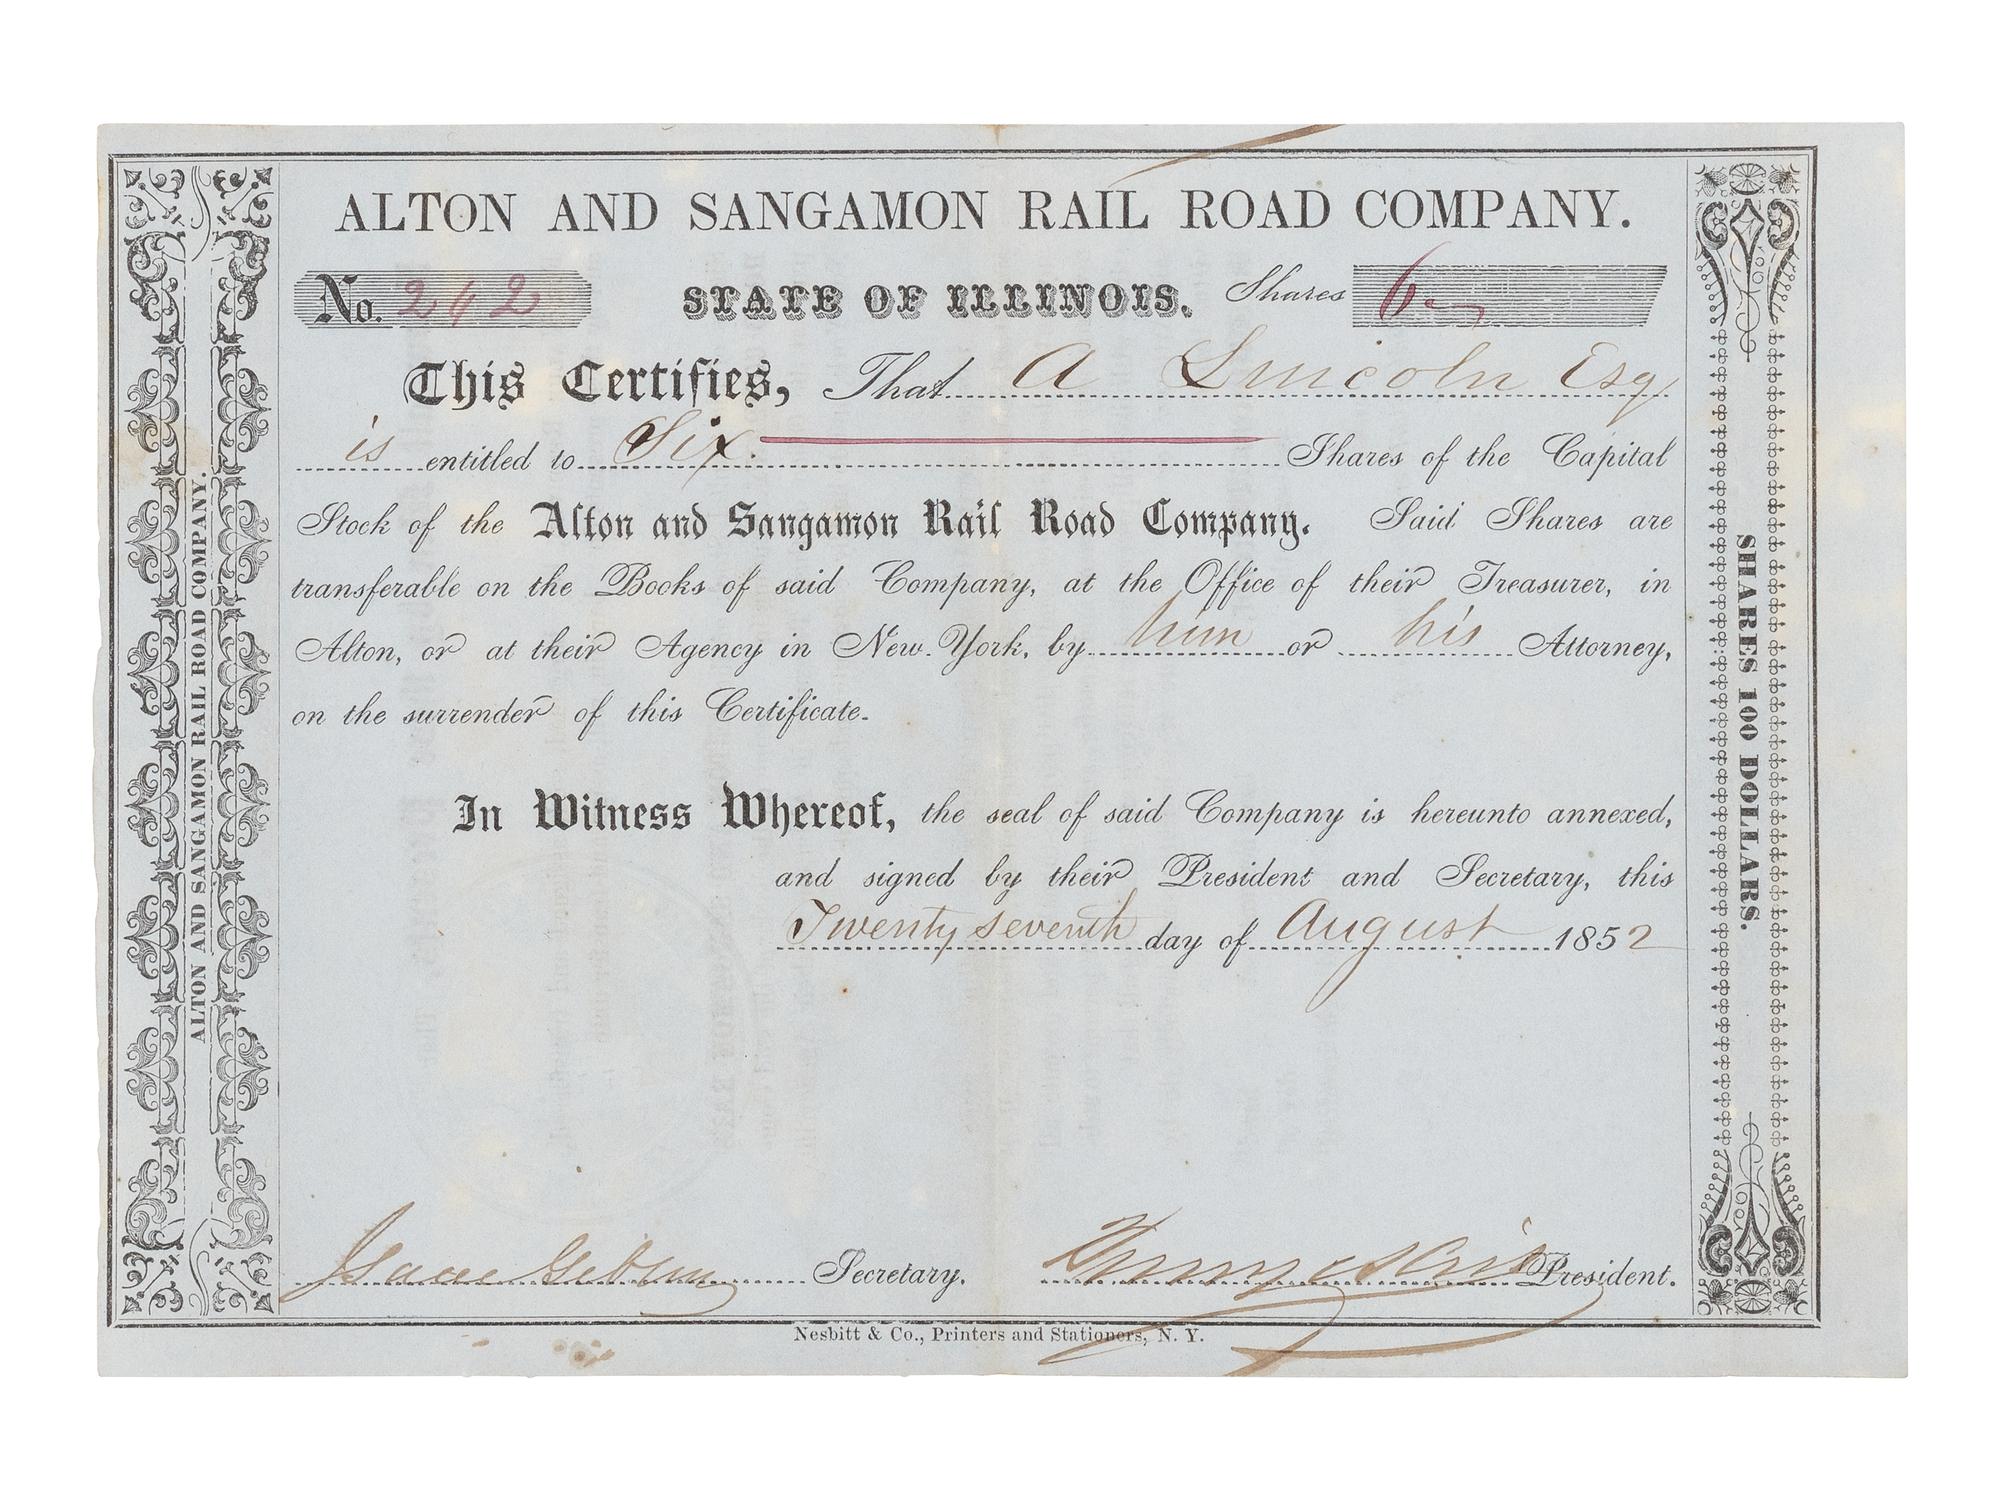 ALTON AND SANGAMON RAIL ROAD COMPANY.
No. 242 STATE OF ILLINOIS. Shares 6
This Certifies, That A Lincoln Esq
is entitled to Six. Shares of the Capital
Stock of the Alton and Sangamon Rail Road Company. Said Shares are
transferable on the Books of said Company, at the Office of their Treasurer, in
Alton, or at their Agency in New-York, by him or his Attorney,
on the surrender of this Certificate.
In Witness Whereof, the seal of said Company is hereunto annexed,
and signed by their President and Secretary, this
Twenty seventh day of August 1852
Isaac Gibson Secretary. President.
Nesbitt & Co., Printers and Stationers, N. Y.
ALTON AND SANGAMON RAIL ROAD COMPANY.
SHARES 100 DOLLARS.